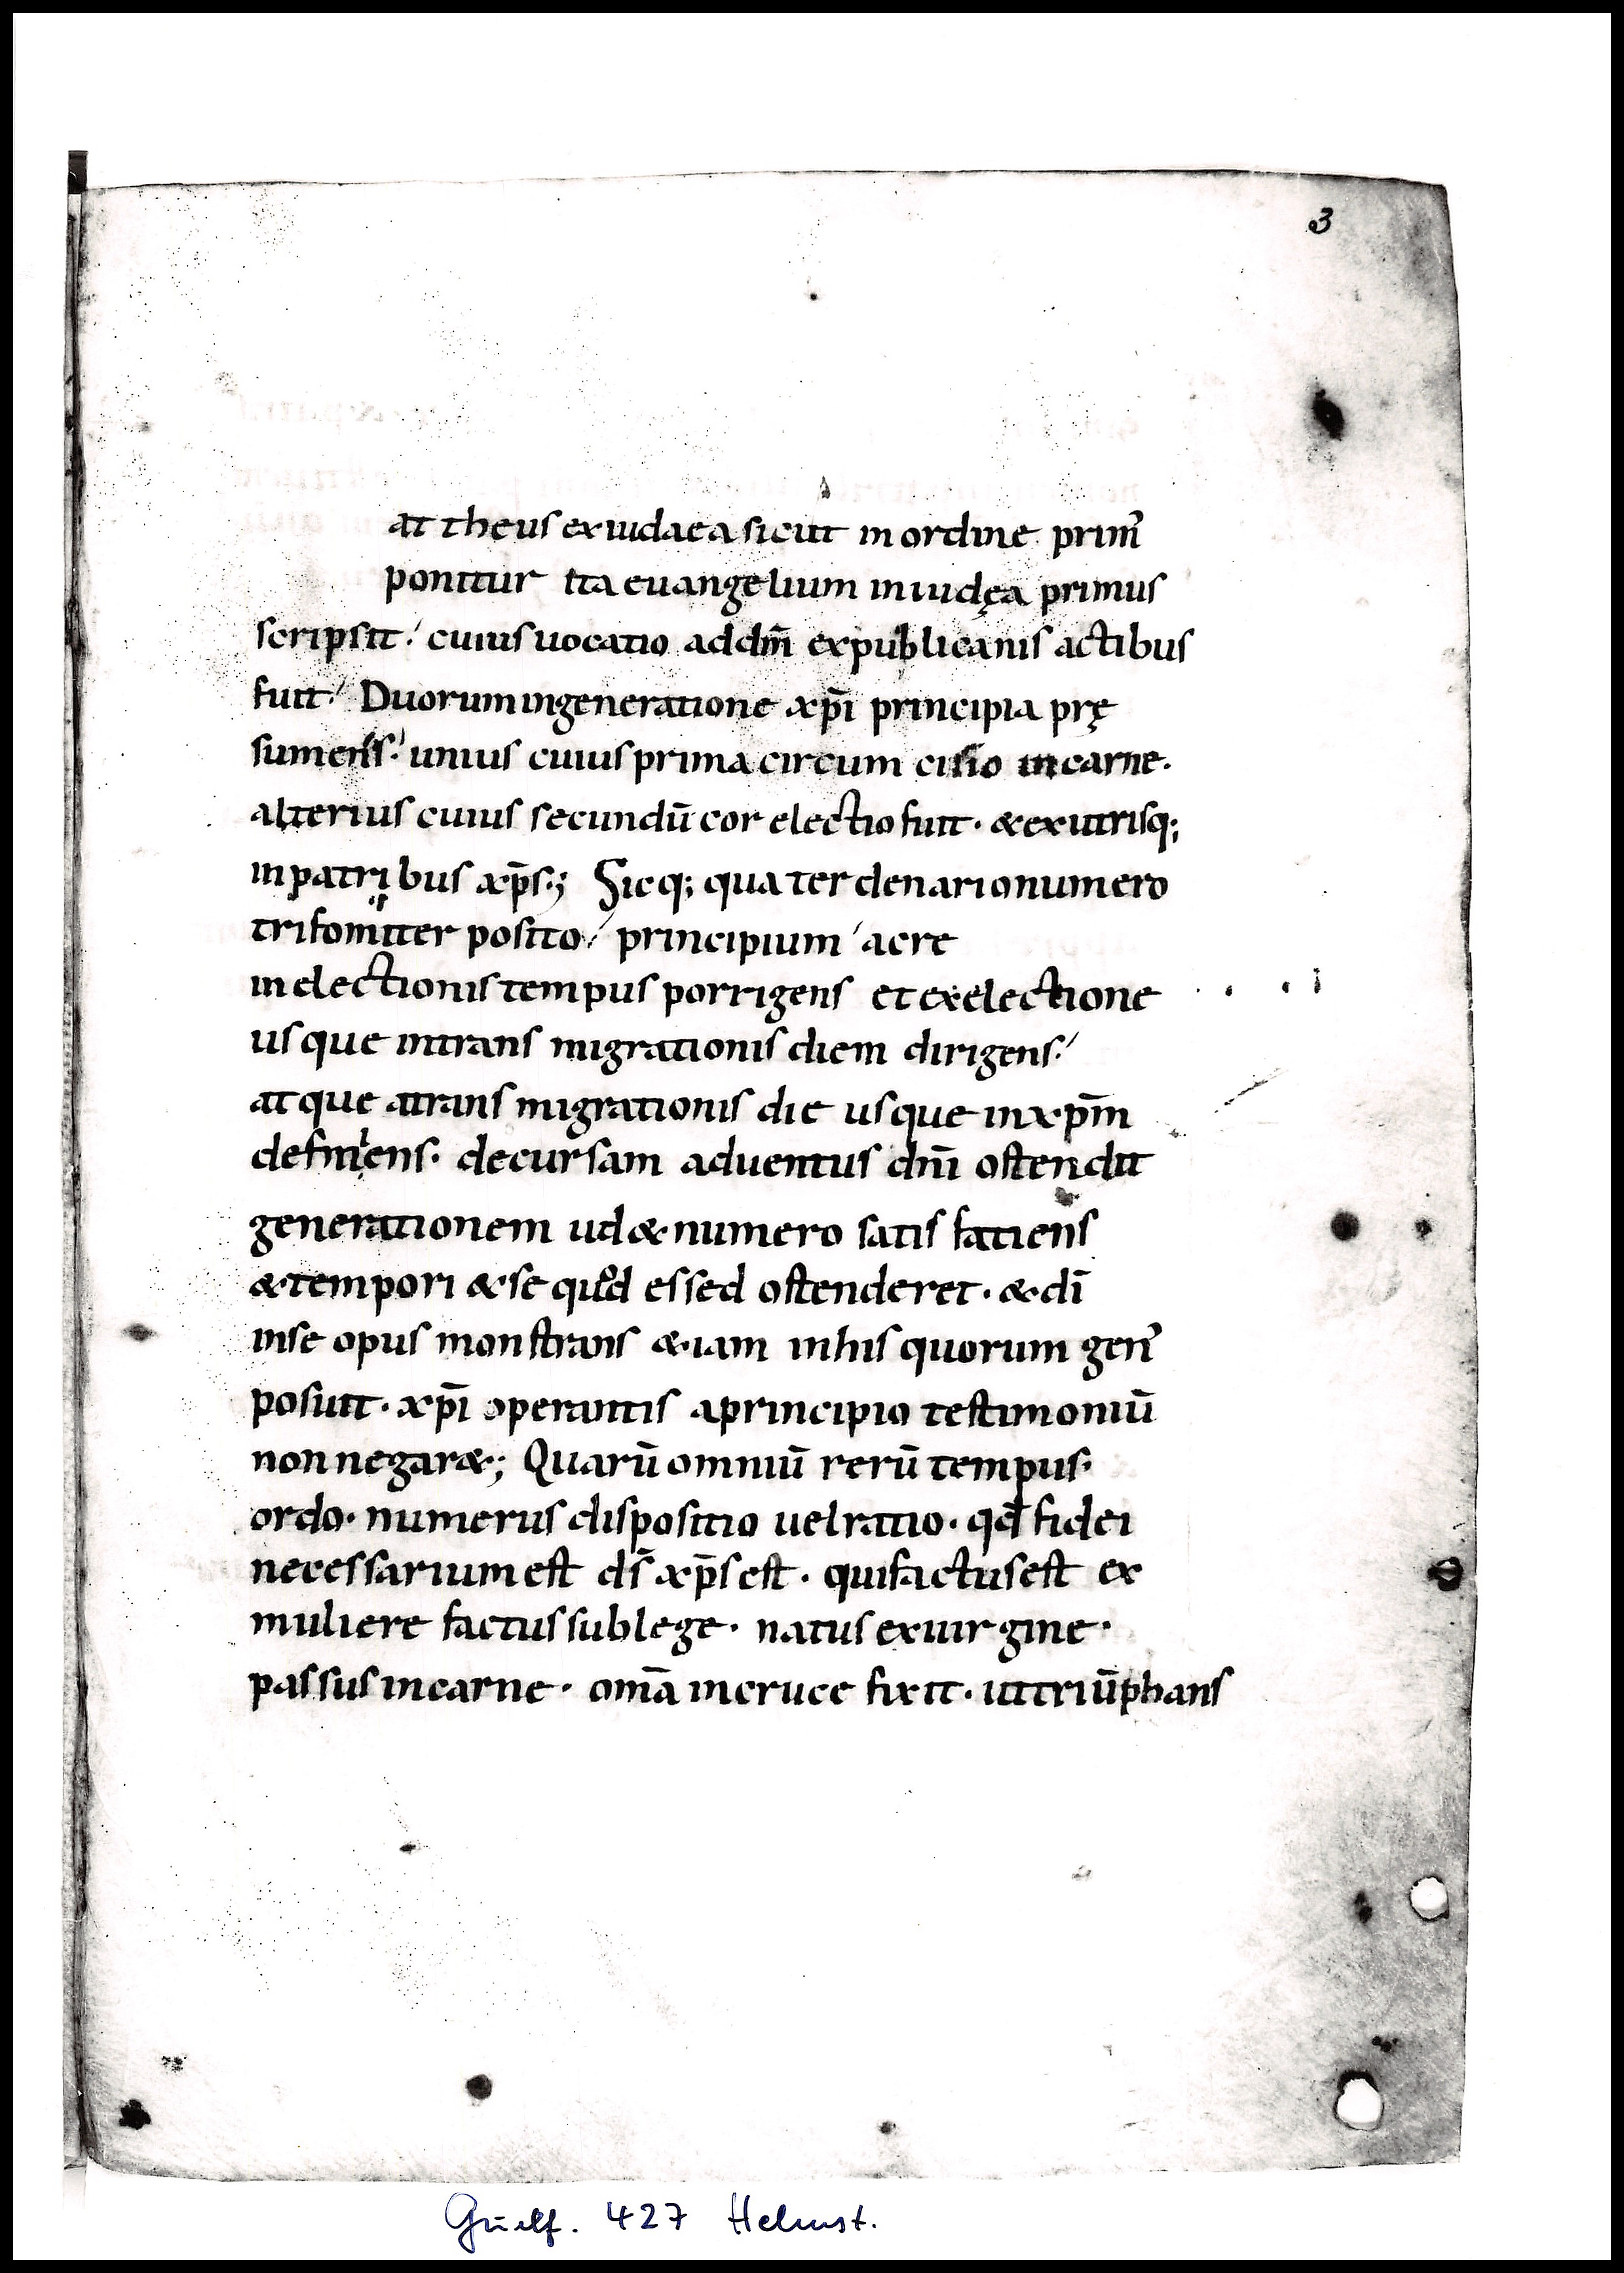 3
at theus exiudaea sicut in ordine prim᾿
ponitur ita euangelium iniudęa primus
scripsit. cuius uocatio addn̄m expublicanis actibus
fuit. Duorum ingeneratione xp̄i principia prę
sumens. unius cuius prima circum cisio incarne.
alterius cuius secundū cor electio fuit. & exutrisq;
inpatribus xp̄s.; Sicq; qua ter denario numero
trifomiter posito principium acre
inelectionis tempus porrigens et exelectione
usque intrans migrationis diem dirigens.
atque atrans migrationis die usque inxp̄m
definiens. decursam aduentus dn̄i ostendit
generationem ud & numero satis fatiens
& tempori & se quod essed ostenderet. & dī
inse opus monstrans & iam inhis quorum gen᾿
posuit. xp̄i operantis aprincipio testimoniū
non negar&.; Quarū omniū rerū tempus.
ordo. numerus dispositio uelratio. qđ fidei
necessarium est ds̄ xp̄s est. quifactus est ex
muliere factus sublege. natus exuirgine.
passus incarne. om̄a incruce fixit. uttriūphans
Guelf. 427 Helmst.